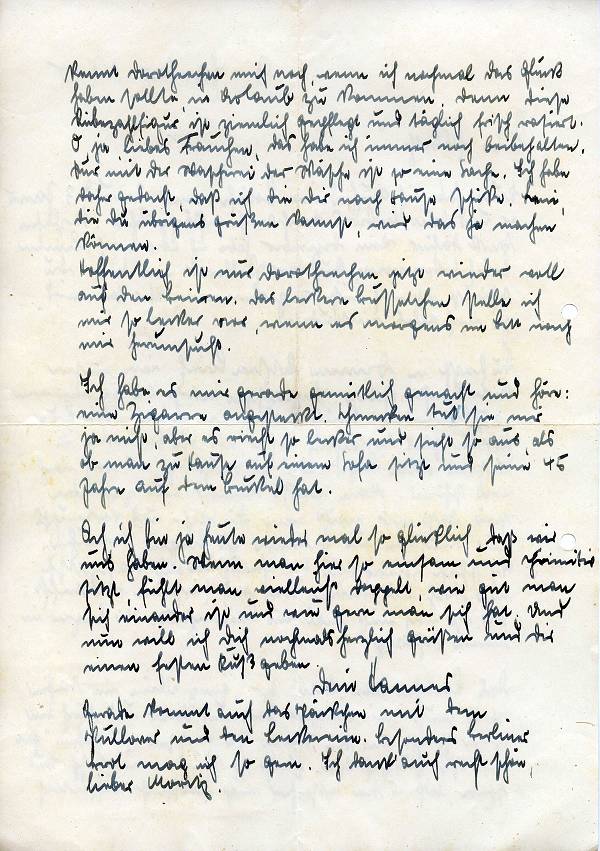 Kennt Dorotheechen mich noch, wenn ich nochmal das Glück
haben sollte in Urlaub zu kommen, denn diese
Liebezahlfigur ist ziemlich gepflegt und täglich frisch rasiert.
O ja liebes Frauchen, das habe ich immer noch beibehalten.
Nur mit der Wascherei der Wäsche ist so eine Sache. Ich habe
daher gedacht, daß ich die dir nach Hause schicke.
die du übrigens grüßen kannst, wird das ja machen
können.
Hoffentlich ist nur Dorotheechen jetzt wieder wohl
auf den Beinen. Das leckere Büsselchen stelle ich
mir so lecker vor, wenn es morgens im Bett nach
mir herumsucht.
Ich habe es mir gerade gemütlich gemacht und höre:
eine Zigarre angesteckt. Schmecken tut sie mir
ja nicht, aber es riecht so lecker und sieht so aus, als
ob man zu Hause auf einem Sofa sitzt und seine 45
Jahre auf dem Buckel hat.
Ach ich bin ja heute wieder mal so glücklich, daß wir
uns haben. Wenn man hier so einsam und primitiv
sitzt, fühlt man vielleicht doppelt, wie gut man
sich einander ist und wie gern man sich hat. Und
nun will ich Dich nochmals herzlich grüßen und dir
einen festen Kuß geben
Dein Hannes
Gerade kommt auch das Päckchen mit dem
Pullover und den Leckereien. Besonders Berliner
Brot mag ich so gern. Ich dank auch recht schön,
lieber Moritz.